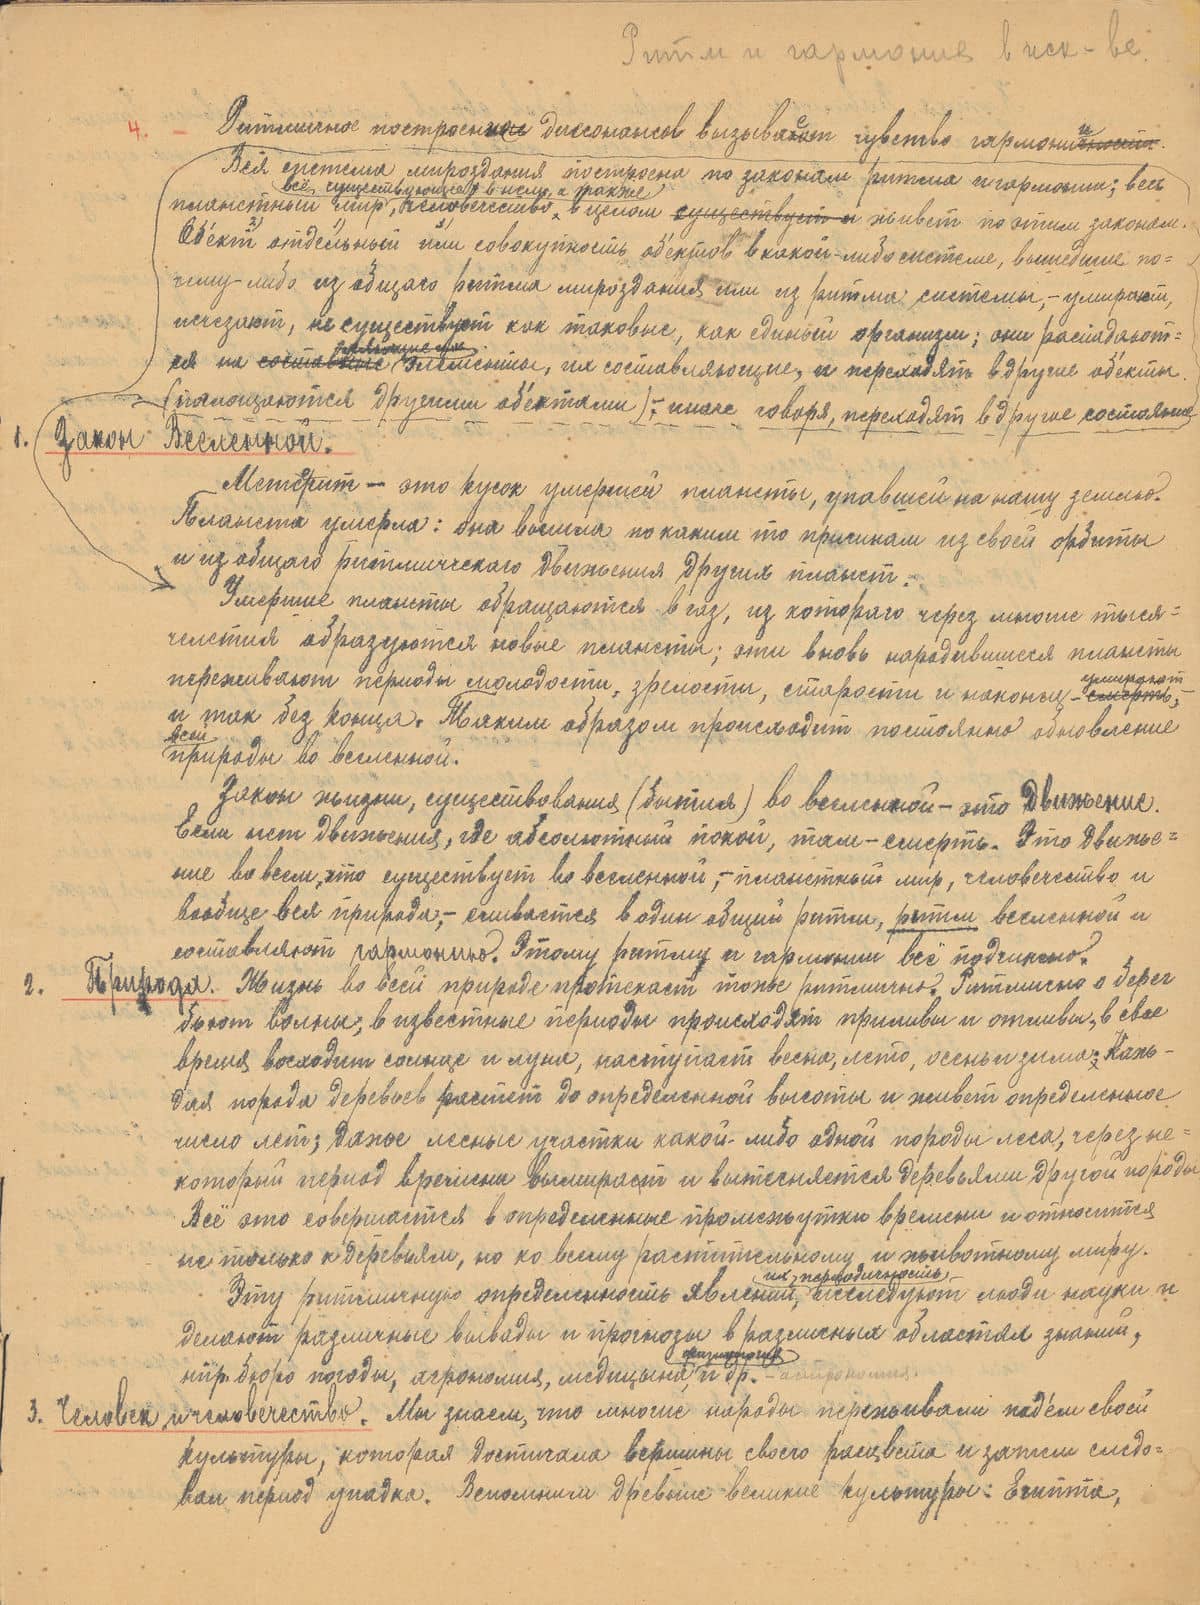 Ритм и гармония в иск-ве.
4. — Ритмичное построение диссонансов вызывает чувство гармонии.
Вся система мироздания построена по законам ритма и гармонии; весь
всё существующее в нему, а также
планетный мир, человечество в целом существует и живет по этим законам.
Обект отдельный или совокупность обектов в какой-либо системе, вышедшие по=
чему-либо из общаго ритма мироздания или из ритма системы, – умирают,
исчезают, не существуют как таковые, как единый организм; они распадают=
ся на составные элементы, их составляющие, и переходят в другие обекты
(поглощаются другими обектами); – иначе говоря, переходят в другое состояние
1. Закон Вселенной.
Метеорит – это кусок умершей планеты, упавшей на нашу землю.
Планета умерла: она вышла по каким то причинам из своей орбиты
и из общаго ритмического движения других планет.
Умершие планеты обращаются в газ, из котораго через многие тыся=
челетия образуются новые планеты; эти вновь народившиеся планеты
умирают
переживают периоды молодости, зрелости, старости и наконец – смерть, –
и так без конца. Таким образом происходит постоянно обновление
всей
природы во вселенной.
Закон жизни, существования (бытия) во вселенной – это движение.
Если нет движения, где абсолютный покой, там – смерть. Это движе=
ние во всем, что существует во вселенной, – планетный мир, человечество и
вообще вся природа, – сливается в один общий ритм, ритм вселенной и
составляют гармонию. Этому ритму и гармонии всё подчинено.
2. Природа. Жизнь во всей природе протекает тоже ритмично. Ритмично о берег
бьют волны; в известные периоды происходят приливы и отливы, в свое
время восходит солнце и луна, наступает весна, лето, осень и зима; каж-
дая порода деревьев растет до определенной высоты и живет определенное
число лет; даже лесные участки какой-либо одной породы леса, через не=
который период времени вымирает и вытесняется деревьями другой породы
Всё это совершается в определенные промежутки времени и относится
не только к деревьям, но ко всему растительному и животному миру.
их периодичность
Эту ритмичную определенность явлений, исследуют люди науки и
делают различные выводы и прогнозы в различных областях знаний,
физиология
нпр. бюро погоды, агрономия, медицына, и др. – астрономия.
3. Человек и человечество. Мы знаем, что многие народы переживали подём своей
культуры, которая достигала вершины своего расцвета и затем следо=
вал период упадка. Вспомним древние великие культуры: Египта,